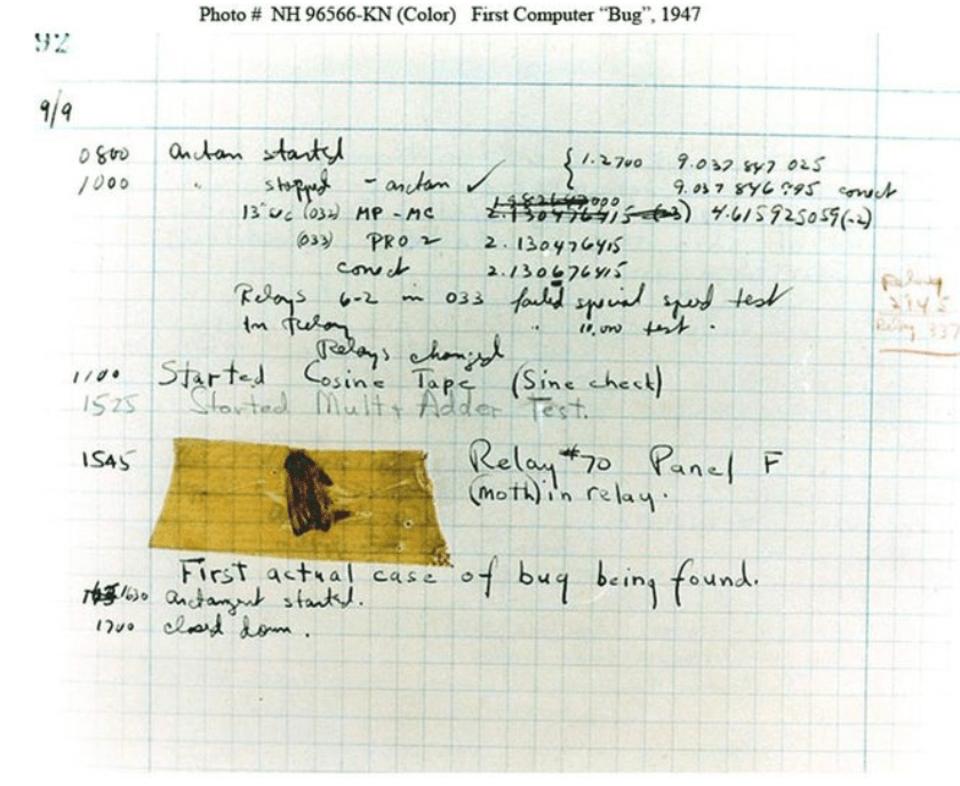 Photo # NH 96566-KN (Color) First Computer “Bug”, 1947
92
9/9
0800 arctan started { 1.2700 9.037 847 025
1000 " stopped - arctan ✓ 9.037 846 995 correct
13"uc (032) MP - MC 2.130476415 4.615925059(-2)
(033) PRO 2 2.130476415
correct 2.130676415
Relays 6-2 in 033 failed special speed test
In relay " 10,000 test.
Relays changed
1100 Started Cosine Tape (Sine check)
1525 Started Mult + Adder Test.
1545 Relay #70 Panel F
(moth) in relay.
First actual case of bug being found.
1630 arctangent started.
1700 closed down.
Relay
Relay 337